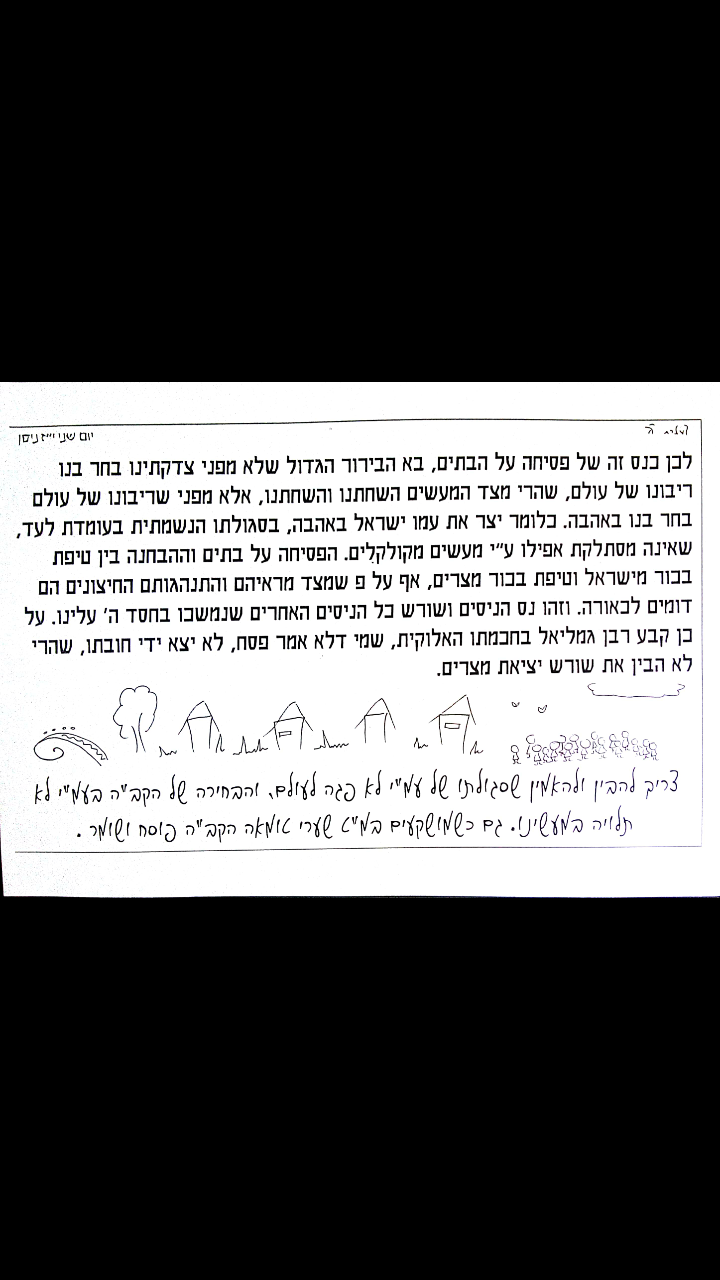 יום שני י״ז ניסן
לכן בנס זה של פסיחה על הבתים, בא הבירור הגדול שלא מפני צדקתינו בחר בנו
ריבונו של עולם, שהרי מצד המעשים השחתנו והשחתנו, אלא מפני שריבונו של עולם
בחר בנו באהבה. כלומר יצר את עמו ישראל באהבה, בסגולתו הנשמתית בעומדת לעד,
שאינה מסתלקת אפילו ע״י מעשים מקולקלים. הפסיחה על בתים וההבחנה בין טיפת
בכור מישראל וטיפת בכור מצרים, אף על פ שמצד מראיהם והתנהגותם החיצונים הם
דומים לכאורה. וזהו נס הניסים ושורש כל הניסים האחרים שנמשכו בחסד ה' עלינו. על
כן קבע רבן גמליאל בחכמתו האלוקית, שמי דלא אמר פסח, לא יצא ידי חובתו, שהרי
לא הבין את שורש יציאת מצרים.
צריך להבין ולהאמין שסגולתו של עמ"י לא פגה לעולם, והבחירה של הקב"ה בעמ"י לא
תלויה במעשינו. גם כשמושקעים במ"ט שערי טומאה הקב"ה פוסח ושומר.